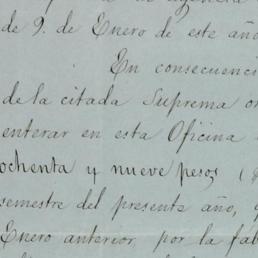 de 9. de Enero de este año
En consecuenci
de la citada Suprema or
enterar en esta Oficina
ochenta y nueve pesos (
semestre del presente año,
Enero anterior, por la fab